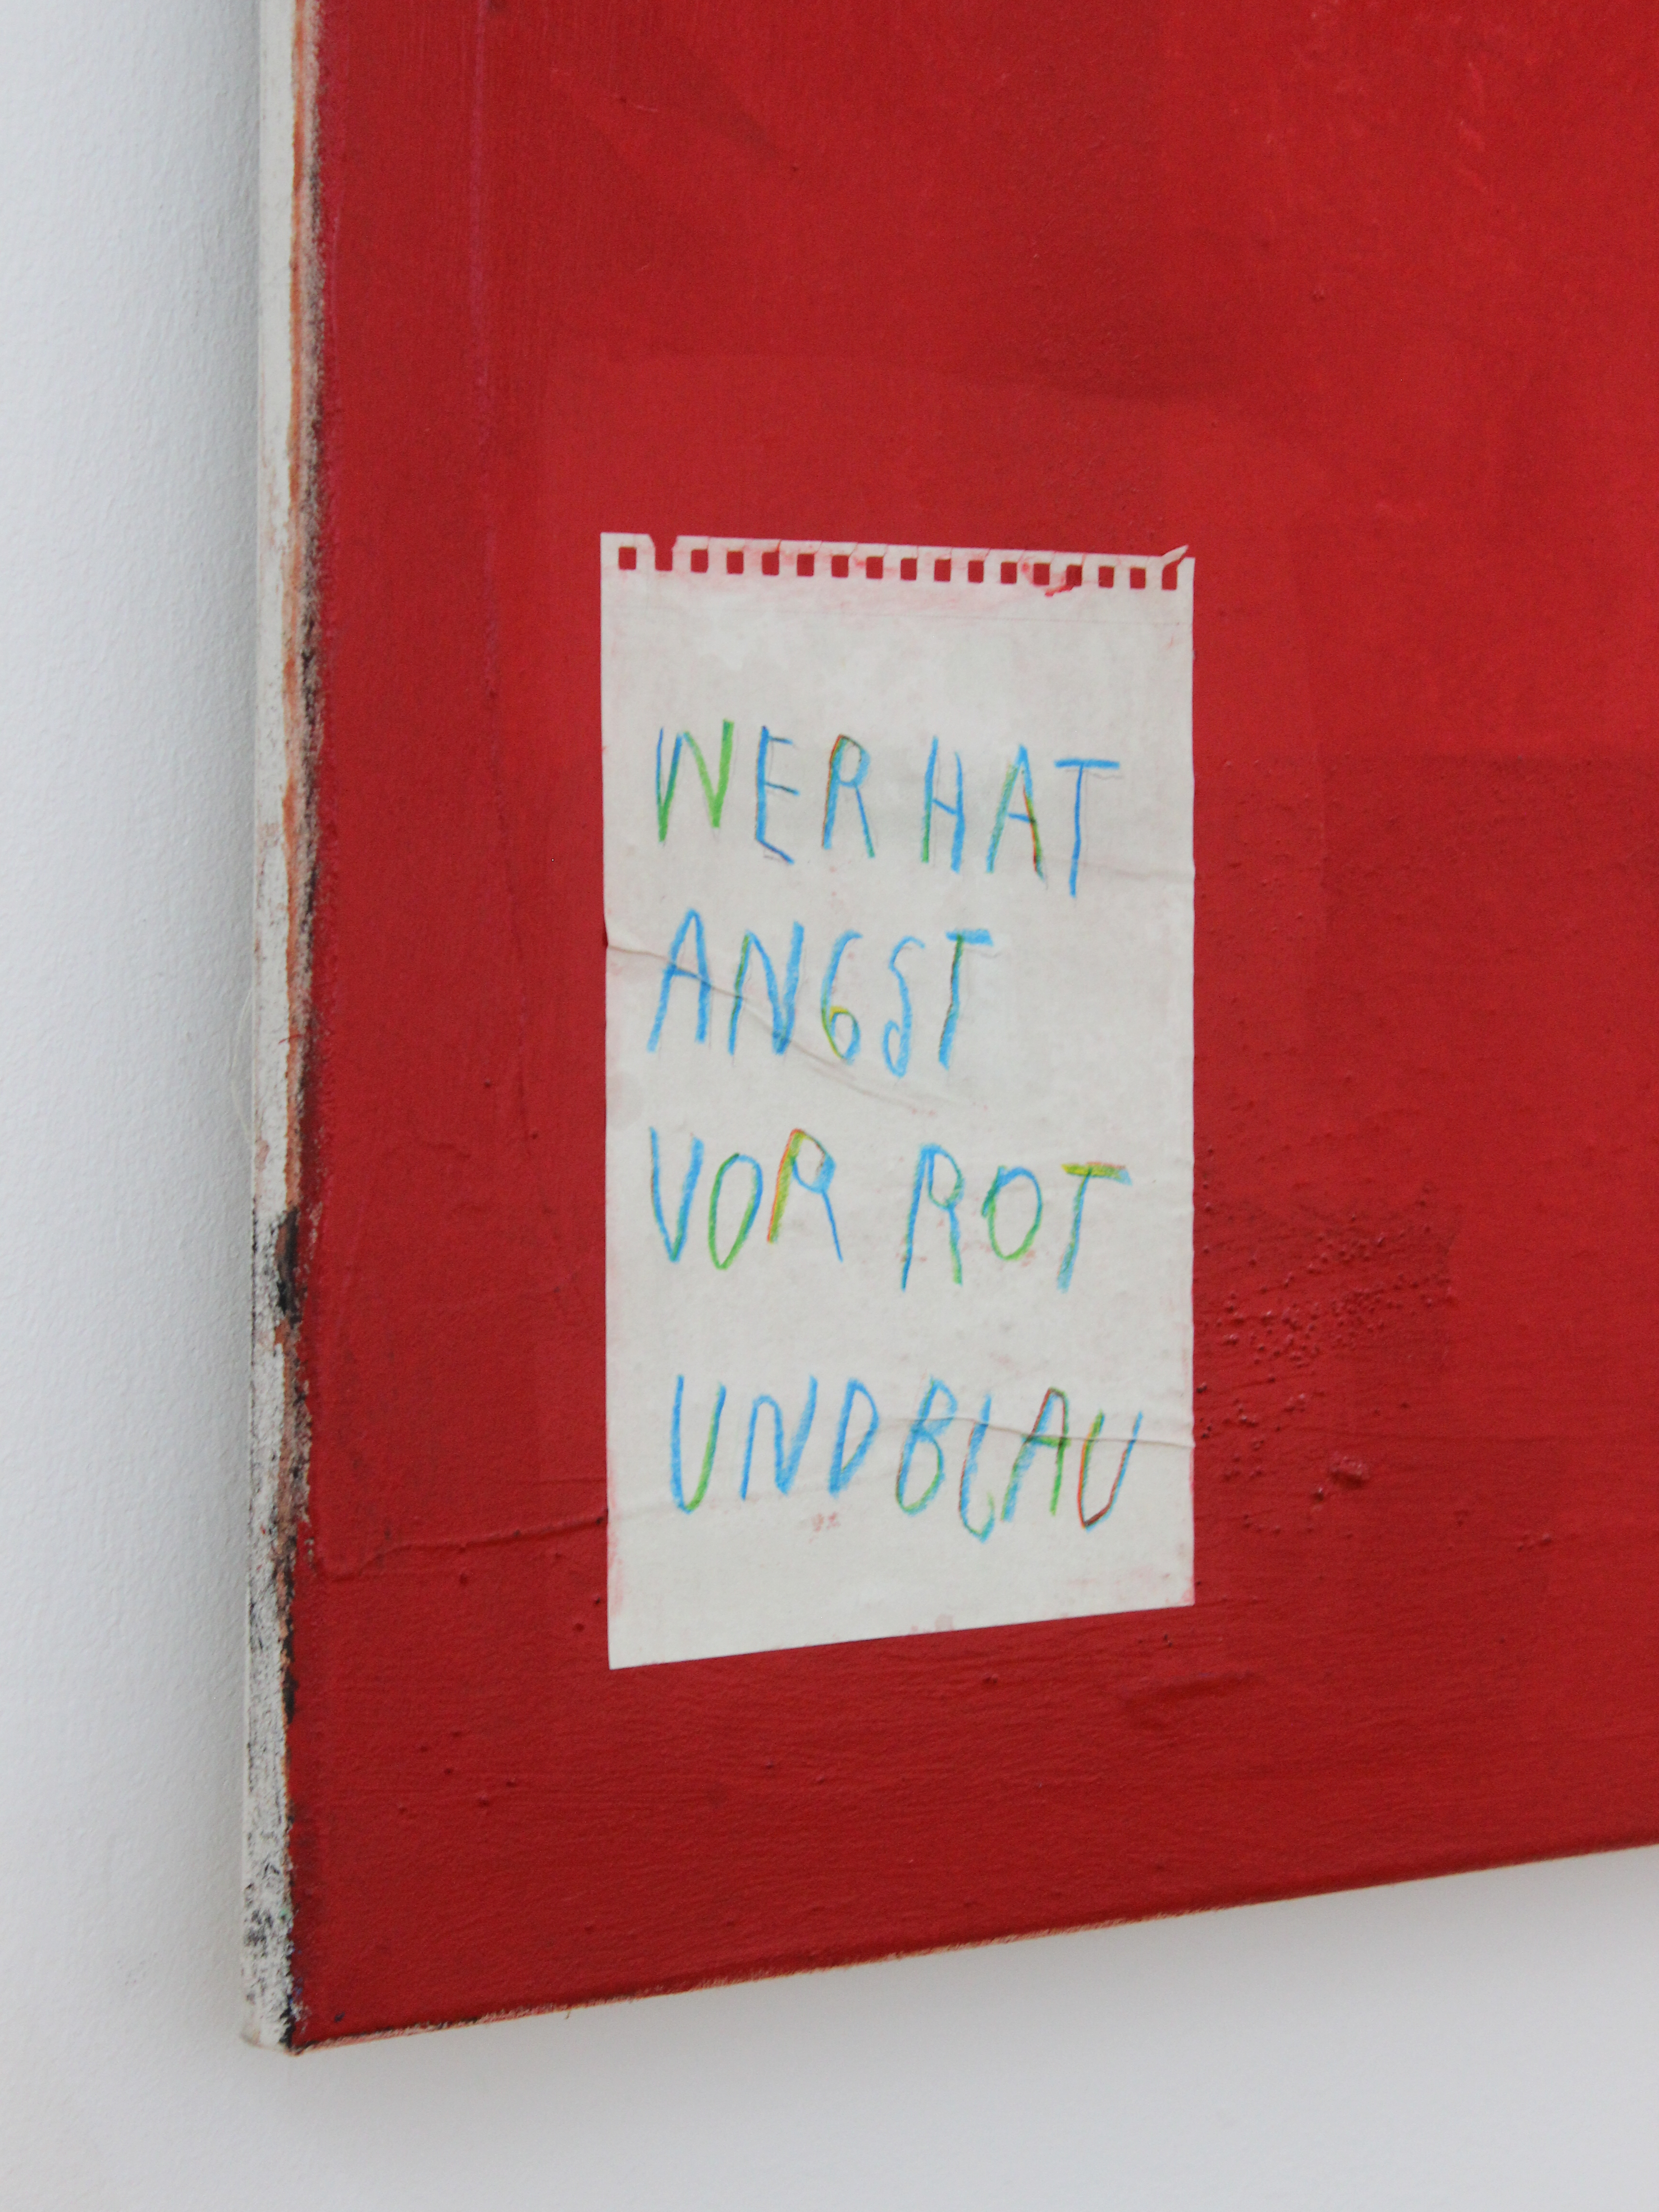 WER HAT
ANGST
VOR ROT
UND BLAU